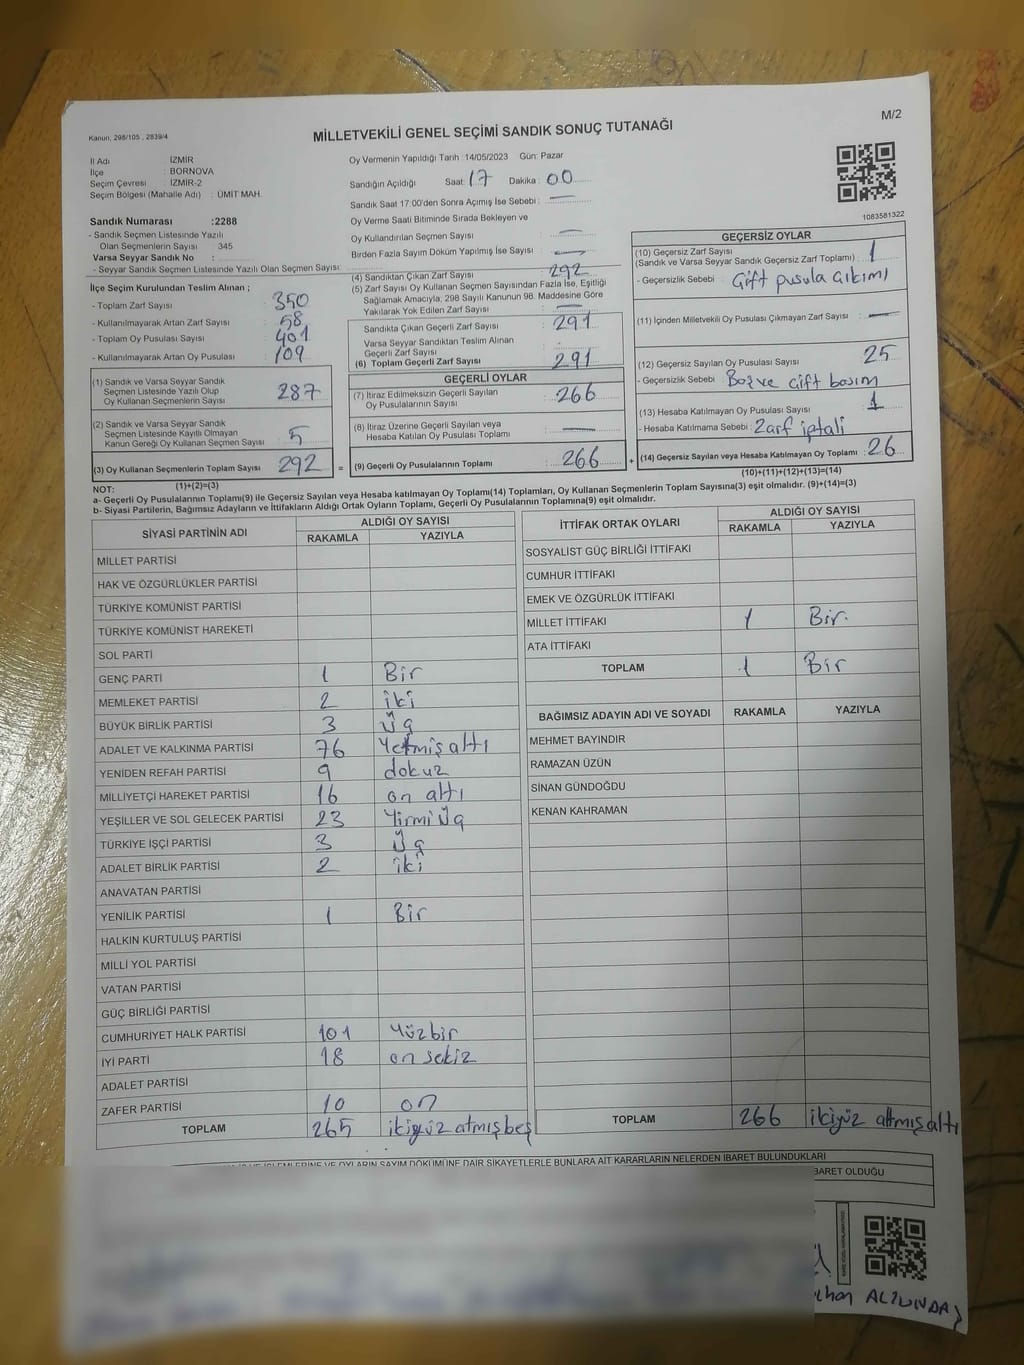 Kanun, 298/105 , 2839/4
MİLLETVEKİLİ GENEL SEÇİMİ SANDIK SONUÇ TUTANAĞI
M/2
İl Adı : İZMİR
İlçe : BORNOVA
Seçim Çevresi : İZMİR-2
Seçim Bölgesi (Mahalle Adı) : ÜMİT MAH.
Sandık Numarası :2288
- Sandık Seçmen Listesinde Yazılı
Olan Seçmenlerin Sayısı : 345
Varsa Seyyar Sandık No :
- Seyyar Sandık Seçmen Listesinde Yazılı Olan Seçmen Sayısı:
İlçe Seçim Kurulundan Teslim Alınan ;
- Toplam Zarf Sayısı : 350
- Kullanılmayarak Artan Zarf Sayısı : 58
- Toplam Oy Pusulası Sayısı : 401
- Kullanılmayarak Artan Oy Pusulası : 109
(1) Sandık ve Varsa Seyyar Sandık
Seçmen Listesinde Yazılı Olup
Oy Kullanan Seçmenlerin Sayısı : 287
(2) Sandık ve Varsa Seyyar Sandık
Seçmen Listesinde Kayıtlı Olmayan
Kanun Gereği Oy Kullanan Seçmen Sayısı : 5
(3) Oy Kullanan Seçmenlerin Toplam Sayısı : 292 =
(1)+(2)=(3)
Oy Vermenin Yapıldığı Tarih :14/05/2023 Gün: Pazar
Sandığın Açıldığı Saat: 17 Dakika : 00
Sandık Saat 17:00'den Sonra Açımış İse Sebebi : —
Oy Verme Saati Bitiminde Sırada Bekleyen ve
Oy Kullandırılan Seçmen Sayısı : —
Birden Fazla Sayım Döküm Yapılmış İse Sayısı : —
(4) Sandıktan Çıkan Zarf Sayısı : 292
(5) Zarf Sayısı Oy Kullanan Seçmen Sayısından Fazla İse, Eşitliği
Sağlamak Amacıyla, 298 Sayılı Kanunun 98. Maddesine Göre
Yakılarak Yok Edilen Zarf Sayısı : —
Sandıkta Çıkan Geçerli Zarf Sayısı : 291
Varsa Seyyar Sandıktan Teslim Alınan
Geçerli Zarf Sayısı :
(6) Toplam Geçerli Zarf Sayısı : 291
GEÇERLİ OYLAR
(7) İtiraz Edilmeksizin Geçerli Sayılan
Oy Pusulalarının Sayısı : 266
(8) İtiraz Üzerine Geçerli Sayılan veya
Hesaba Katılan Oy Pusulası Toplamı : —
(9) Geçerli Oy Pusulalarının Toplamı : 266 +
1083581322
GEÇERSİZ OYLAR
(10) Geçersiz Zarf Sayısı
(Sandık ve Varsa Seyyar Sandık Geçersiz Zarf Toplamı) : 1
- Geçersizlik Sebebi : Çift pusula çıkımı
(11) İçinden Milletvekili Oy Pusulası Çıkmayan Zarf Sayısı : —
(12) Geçersiz Sayılan Oy Pusulası Sayısı : 25
- Geçersizlik Sebebi : Boş ve çift basım
(13) Hesaba Katılmayan Oy Pusulası Sayısı : 1
- Hesaba Katılmama Sebebi : Zarf iptali
(14) Geçersiz Sayılan veya Hesaba Katılmayan Oy Toplamı : 26
(10)+(11)+(12)+(13)=(14)
NOT:
a- Geçerli Oy Pusulalarının Toplamı(9) ile Geçersiz Sayılan veya Hesaba katılmayan Oy Toplamı(14) Toplamları, Oy Kullanan Seçmenlerin Toplam Sayısına(3) eşit olmalıdır. (9)+(14)=(3)
b- Siyasi Partilerin, Bağımsız Adayların ve İttifakların Aldığı Ortak Oyların Toplamı, Geçerli Oy Pusulalarının Toplamına(9) eşit olmalıdır.
SİYASİ PARTİNİN ADI ALDIĞI OY SAYISI
RAKAMLA YAZIYLA
MİLLET PARTİSİ
HAK VE ÖZGÜRLÜKLER PARTİSİ
TÜRKİYE KOMÜNİST PARTİSİ
TÜRKİYE KOMÜNİST HAREKETİ
SOL PARTİ
GENÇ PARTİ 1 Bir
MEMLEKET PARTİSİ 2 iki
BÜYÜK BİRLİK PARTİSİ 3 Üç
ADALET VE KALKINMA PARTİSİ 76 Yetmiş altı
YENİDEN REFAH PARTİSİ 9 dokuz
MİLLİYETÇİ HAREKET PARTİSİ 16 on altı
YEŞİLLER VE SOL GELECEK PARTİSİ 23 Yirmi Üç
TÜRKİYE İŞÇİ PARTİSİ 3 Üç
ADALET BİRLİK PARTİSİ 2 iki
ANAVATAN PARTİSİ
YENİLİK PARTİSİ 1 Bir
HALKIN KURTULUŞ PARTİSİ
MİLLİ YOL PARTİSİ
VATAN PARTİSİ
GÜÇ BİRLİĞİ PARTİSİ
CUMHURİYET HALK PARTİSİ 101 Yüzbir
İYİ PARTİ 18 on sekiz
ADALET PARTİSİ
ZAFER PARTİSİ 10 on
TOPLAM 265 ikiyüz atmışbeş
İTTİFAK ORTAK OYLARI ALDIĞI OY SAYISI
RAKAMLA YAZIYLA
SOSYALİST GÜÇ BİRLİĞİ İTTİFAKI
CUMHUR İTTİFAKI
EMEK VE ÖZGÜRLÜK İTTİFAKI
MİLLET İTTİFAKI 1 Bir.
ATA İTTİFAKI
TOPLAM 1 Bir
BAĞIMSIZ ADAYIN ADI VE SOYADI RAKAMLA YAZIYLA
MEHMET BAYINDIR
RAMAZAN ÜZÜN
SİNAN GÜNDOĞDU
KENAN KAHRAMAN
TOPLAM 266 ikiyüz altmışaltı
VE İŞLEMLERİNE VE OYLARIN SAYIM DÖKÜMÜNE DAİR ŞİKAYETLERLE BUNLARA AİT KARARLARIN NELERDEN İBARET BULUNDUKLARI
BARET OLDUĞU